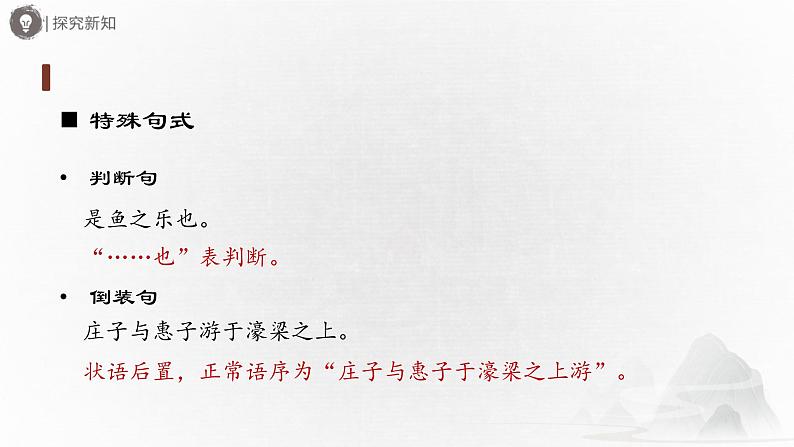 探究新知
■ 特殊句式
• 判断句
是鱼之乐也。
“……也”表判断。
• 倒装句
庄子与惠子游于濠梁之上。
状语后置，正常语序为“庄子与惠子于濠梁之上游”。